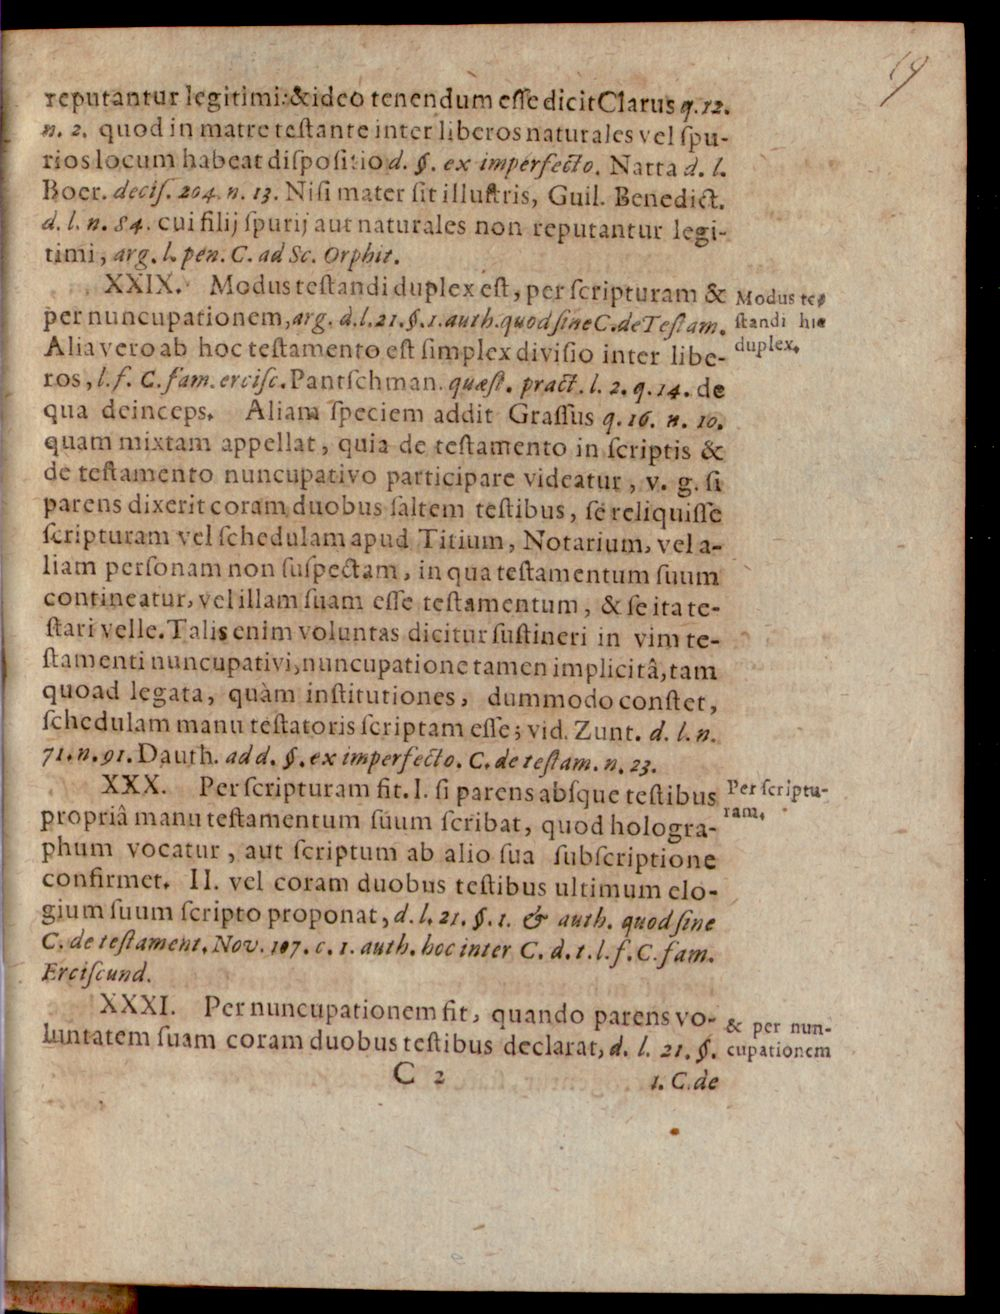 19
reputantur legitimi: & ideò tenendum esse dicit Clarus q. 12.
n. 2. quod in matre testante inter liberos naturales vel spu-
rios locum habeat dispositio d. §. ex imperfecto. Natta d. l.
Boer. decis. 204. n. 13. Nisi mater sit illustris, Guil. Benedict.
d. l. n. 84. cui filij spurij aut naturales non reputantur legi-
timi, arg. l. pen. C. ad Sc. Orphit.
XXIX. Modus testandi duplex est, per scripturam &
per nuncupationem, arg. d. l. 21. §. 1. auth. quod sine C. de Testam.
Alia vero ab hoc testamento est simplex divisio inter libe-
ros, l. f. C. fam. ercisc. Pantschman. quæst. pract. l. 2. q. 14. de
qua deinceps. Aliam speciem addit Grassus q. 16. n. 10.
quam mixtam appellat, quia de testamento in scriptis &
de testamento nuncupativo participare videatur, v. g. si
parens dixerit coram duobus saltem testibus, se reliquisse
scripturam vel schedulam apud Titium, Notarium, vel a-
liam personam non suspectam, in qua testamentum suum
contineatur, vel illam suam esse testamentum, & se ita te-
stari velle. Talis enim voluntas dicitur sustineri in vim te-
stamenti nuncupativi, nuncupatione tamen implicitâ, tam
quoad legata, quàm institutiones, dummodo constet,
schedulam manu testatoris scriptam esse; vid. Zunt. d. l. n.
71. n. 91. Dauth. ad d. §. ex imperfecto. C. de testam. n. 23.
XXX. Per scripturam fit. I. si parens absque testibus
propriâ manu testamentum suum scribat, quod hologra-
phum vocatur, aut scriptum ab alio sua subscriptione
confirmet. II. vel coram duobus testibus ultimum elo-
gium suum scripto proponat, d. l. 21. §. 1. & auth. quod sine
C. de testament. Nov. 107. c. 1. auth. hoc inter C. d. t. l. f. C. fam.
Erciscund.
XXXI. Per nuncupationem fit, quando parens vo-
luntatem suam coram duobus testibus declarat, d. l. 21. §.
C 2
1. C. de
Modus te-
standi hic
duplex.
Per scriptu-
ram.
& per nun-
cupationem